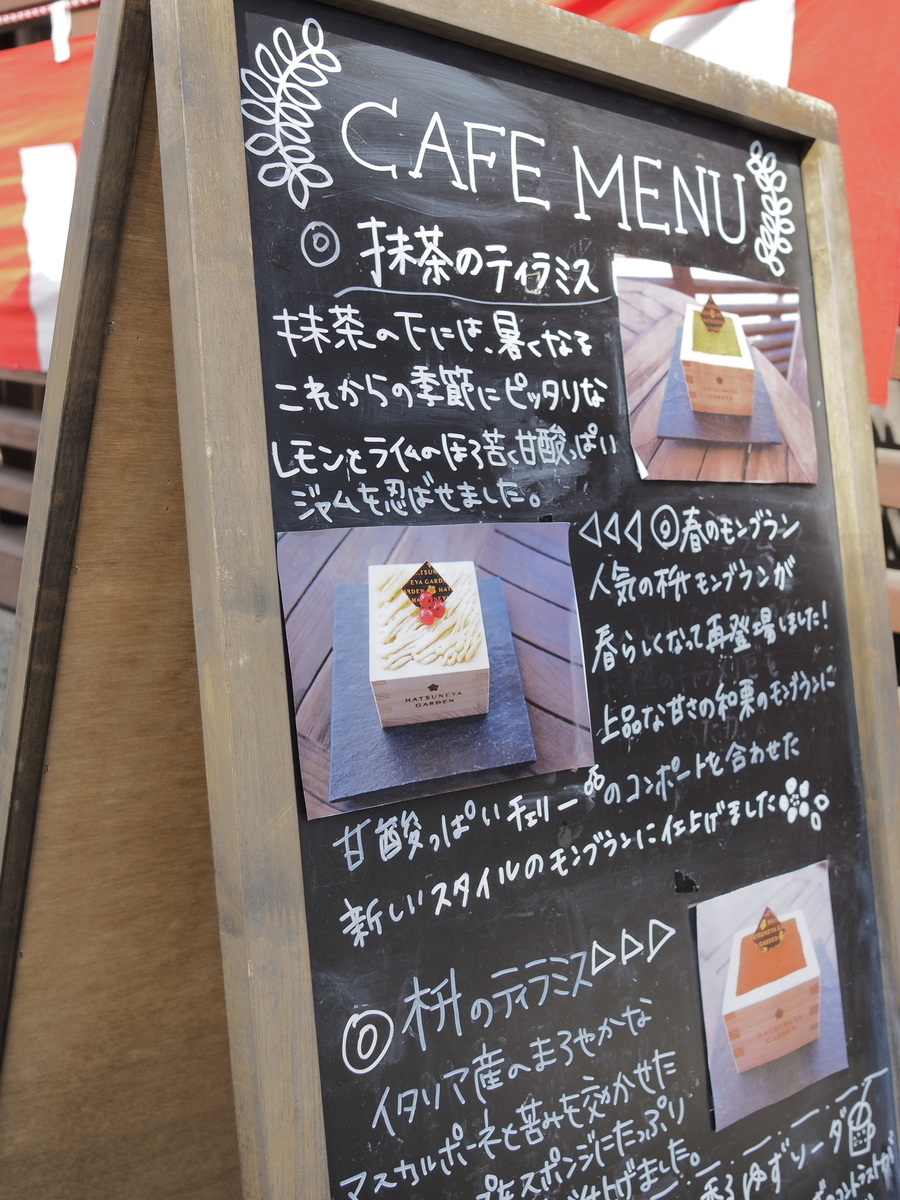 CAFE MENU
◎ 抹茶のティラミス
抹茶の下には、暑くなる
これからの季節にピッタリな
レモンとライムのほろ苦く甘酸っぱい
ジャムを忍ばせました。
◁◁◁ ◎春のモンブラン
人気の枡モンブランが
春らしくなって再登場しました!
上品な甘さの和栗のモンブランに
甘酸っぱいチェリーのコンポートを合わせた
新しいスタイルのモンブランに仕上げました
HATSUNEYA
GARDEN
◎ 枡のティラミス▷▷▷
イタリア産のまろやかな
マスカルポーネと苦みを効かせた
スポンジにたっぷり
仕上げました。
HATSUNEYA
GARDEN
ゆずソーダ